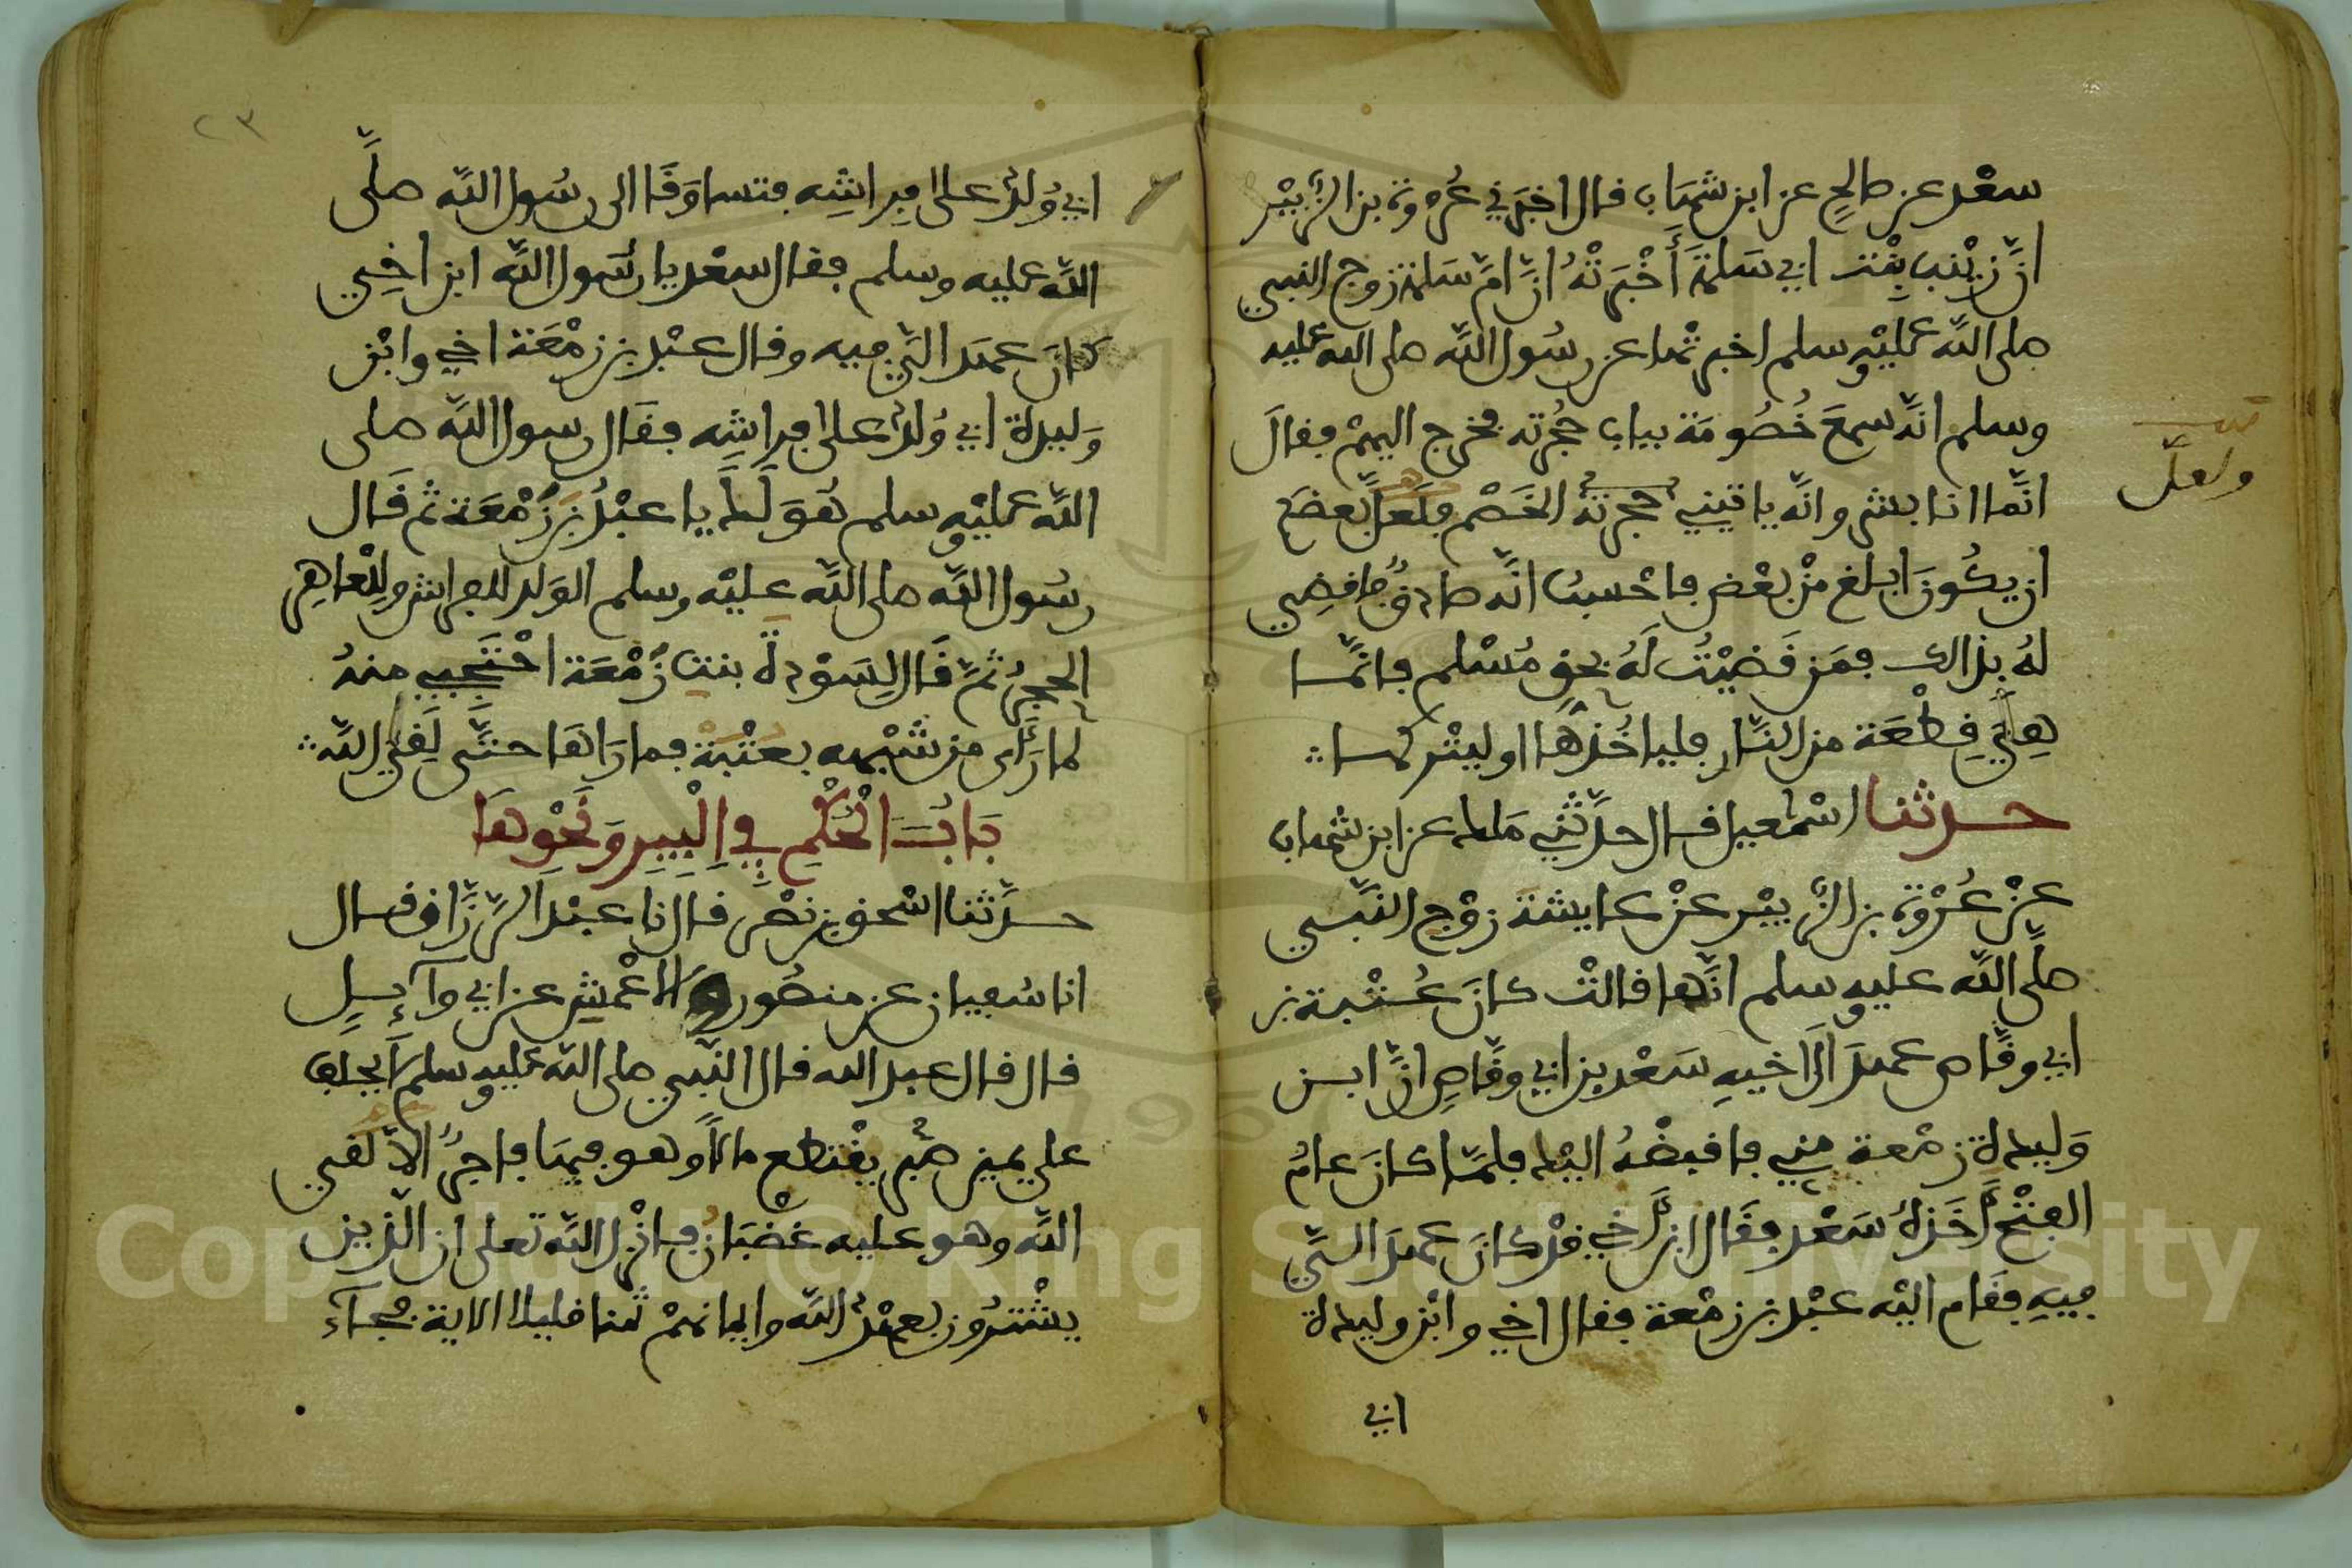 سعْد عن صالحٍ عن ابن شهَاب قال اخبَرَني عُروة بن الزُّبيْر
انَّ زيْنب بِنْت ابي سَلمَةَ أَخْبَرَتْهُ انَّ امَّ سَلمة زوج النبي
صلى اللَّه عليْه وسلم اخبرتْها عن رسُول اللَّه صلى الله عليه
وسلم انَّه سمعَ خُصُومَة بباب حجُرته فخرج اليهمْ فقالَ
انَّما انا بشر وانَّه ياتيني حجرته الخَصْم فلَعَلَّ بعضَكم
ان يكُونَ ابلغ منْ بعْض فاحْسبُ انَّه صادقٌ فاقضِي
لهُ بذالك فمَن قَضيْتُ لَهُ بحق مُسْلم فانَّما
هِيَ قِطْعَة من النَّار فليا خُذهَا او ليتْركها
حدثنا اسْمعيل قال حدَّثني مَلك عن ابن شهاب
عنْ عُرْوَة بن الزُّبيْر عنْ عايشة زوْج النَّبي
صلَّى اللَّه عليه وسلم انَّها قالتْ كانَ عُتْبة بن
ابي وقَّاص عهدَ الَى اخيهِ سَعْد بن ابي وقَّاصٍ انَّ ابن
وَليدة زمْعة مني فاقبضْهُ اليْك فلمَّا كانَ عامُ
الفتْح أَخَذهُ سَعْد فقَال ابن أَخي قدْ كانَ عهدَ الىَّ
فيهِ فقَام اليْه عبْد بن زمْعة فقال اخي وابْن وليدة
ابي
ولعلَّ
٢٣
ابي وُلدَ على فِراشِه فتساوَقَا الى رسُول اللَّه صلَّى
اللَّه عليه وسلم فقال سعْد يا رسُول اللَّه ابن اخِي
كانَ عهدَ الىَّ فيه وقال عبْد بن زمْعَة اخي وابْن
وَليدة ابي وُلدَ على فِراشِه فقَال رسول اللَّه صلى
اللَّه عليْه وسلم هُوَ لَكَ يا عبْدُ بنَ زَمْعَة ثم قَال
رسُول اللَّه صلى اللَّه عليْه وسلم الوَلد للفراش وللْعاهِر
الحجرُ ثمَّ قَال لِسَوْدةَ بنت زَمْعَة احْتَجبي منهُ
لما رَأَى من شبْهه بعتْبَة فما رَاهَا حتَّى لَقيَ اللَّه
بَابُ الْحُكْمِ فِي الْبِيرِ وَنَحْوِهَا
حدَّثنا اسْحق بن نصْر قال انا عبْد الرَّزَّاق قال
انا سُفيان عن منصُور والاعْمشِ عن ابي وآيِلٍ
قال قال عبد الله قال النَّبي صلى اللَّه عليه وسلم لَا يحلف
على يمين صبْر يقْتطع مالًا وهو فيهَا فاجرٌ الَّا لقي
اللَّه وهو عليه غضْبَانُ فانْزل اللَّه تعلى ان الَّذين
يشْترُون بعهْد اللَّه وايمانهمْ ثمنا قليلا الاية فجآءَ
Copyright © King Saud University
1957